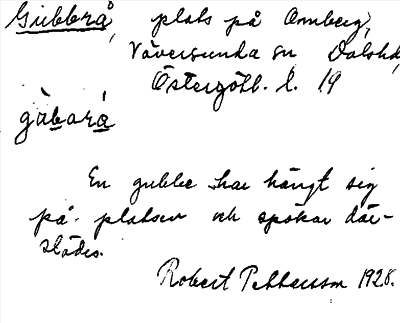 Gubbrå, plats på Omberg,
Väversunda sn Dalshd,
Östergötl. l. 19
gùbará
En gubbe har hängt sig
på platsen och spökar där-
städes.
Robert Pettersson 1928.